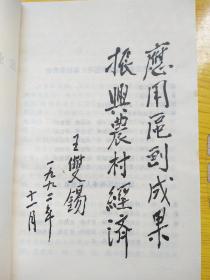 應用區划成果
振興農村經濟
王雙錫
一九九二年
十一月